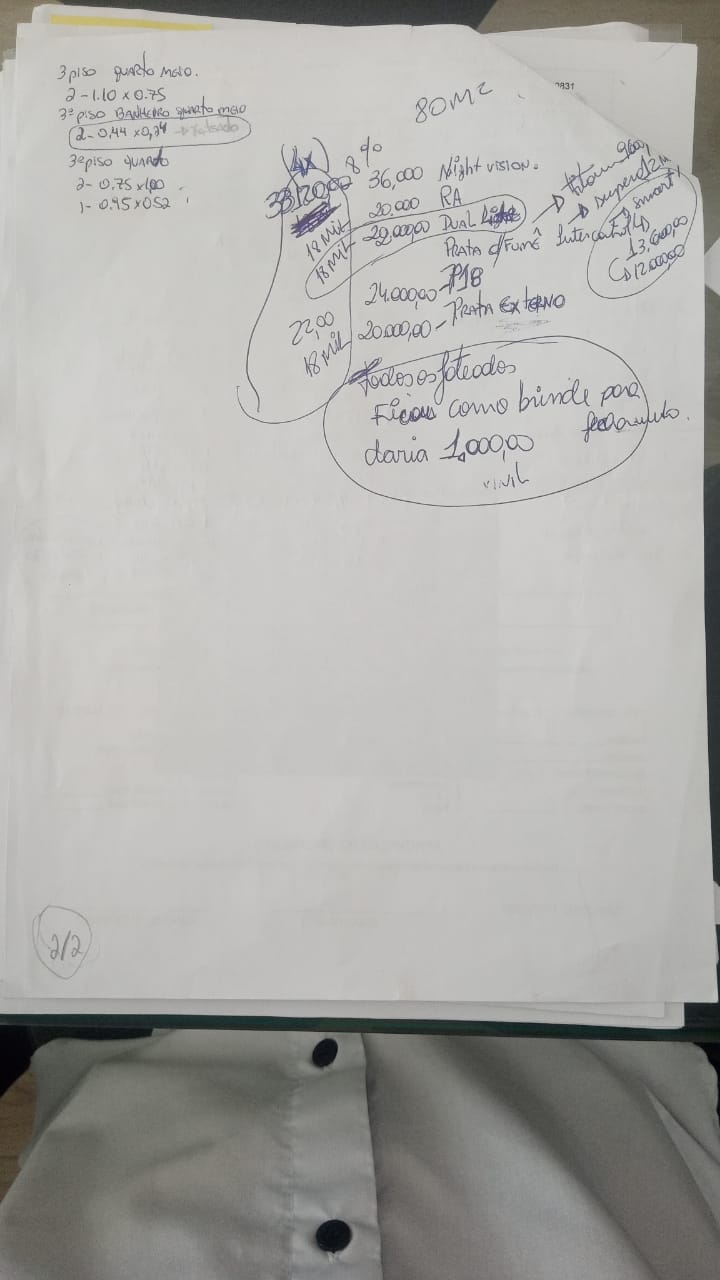 3 piso quarto meio.
2-1.10 x 0.75
3º piso Banheiro quarto meio
2-0,44 x 0,34
3º piso quarto
2- 0,75 x 1,00
1- 0,95 x 0,52
80m²
0831
(4x)
8%
33120,00
18 mil
18 mil
22,00
18 mil
36,000 Night vision.
20.000 RA
20.000,00 Dual
Prata / Fumê
24.000,00 - P18
20.000,00 - Prata externo
smart
13,600,00
12.000,00
Todos os foteados
Ficou como brinde para
fechamento.
daria 1,000,00
vinil
2/2